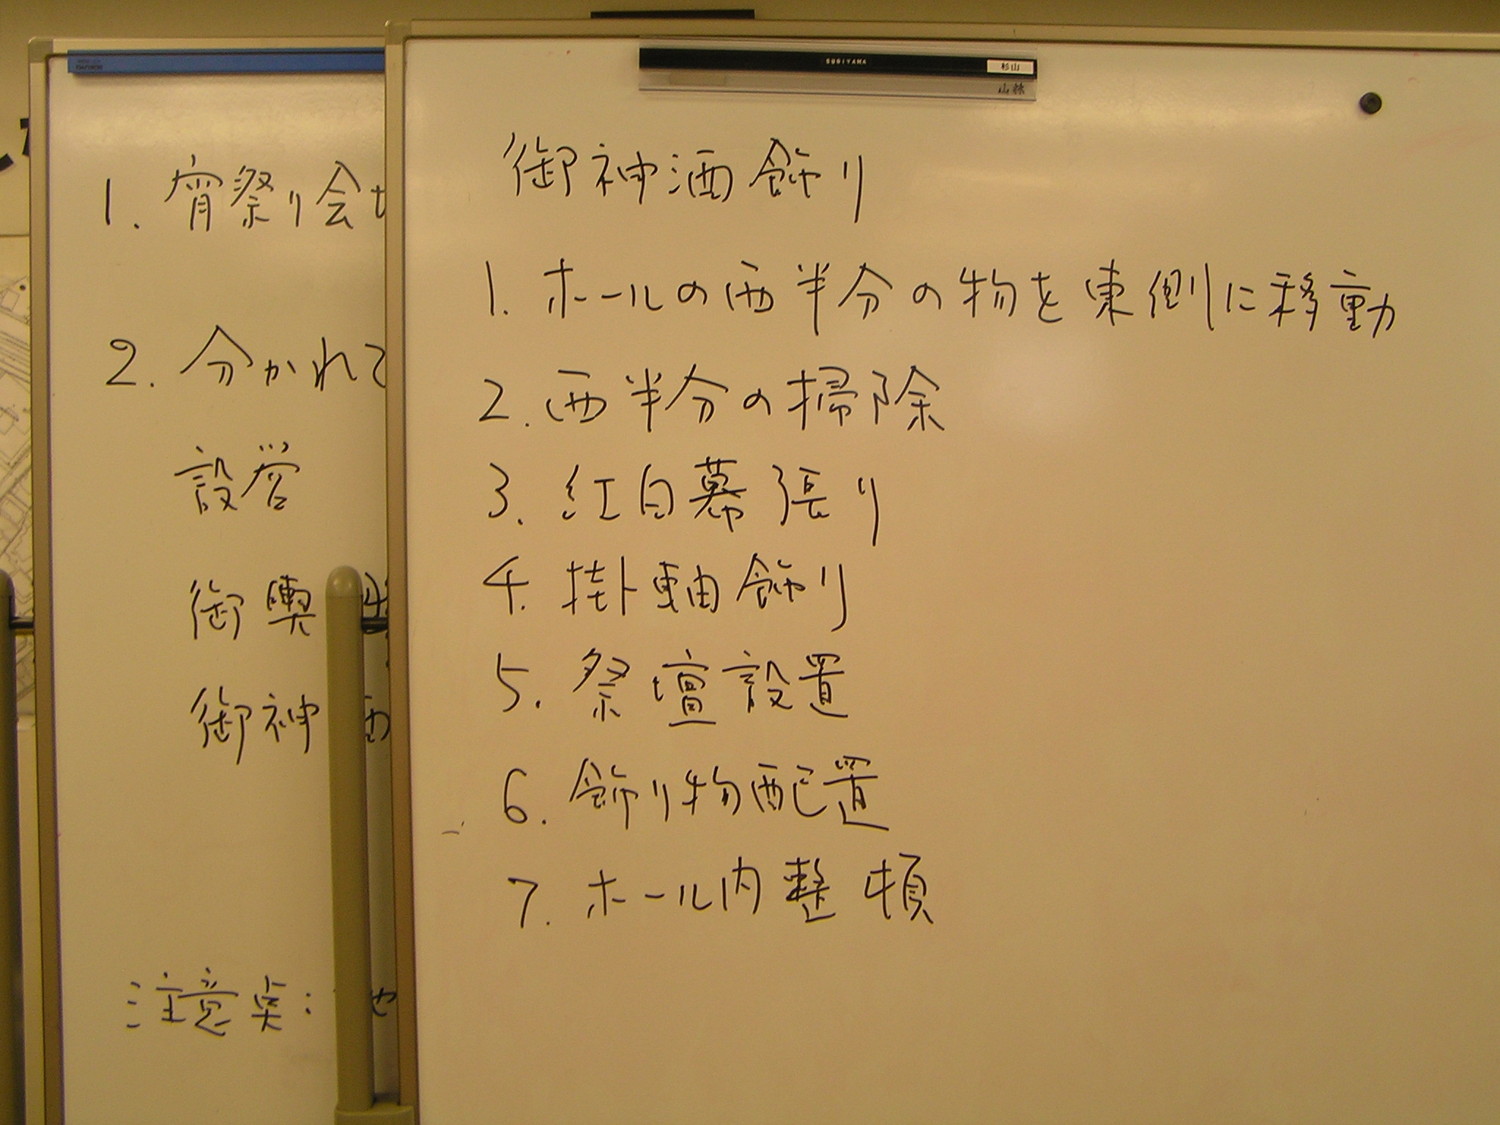 SUGIYAMA
杉山
山林
御神酒飾り
1. ホールの西半分の物を東側に移動
2. 西半分の掃除
3. 紅白幕張り
4. 掛軸飾り
5. 祭壇設置
6. 飾り物配置
7. ホール内整頓
1. 宵祭り会
2. 分かれて
設営
御輿
御神酒
注意点: